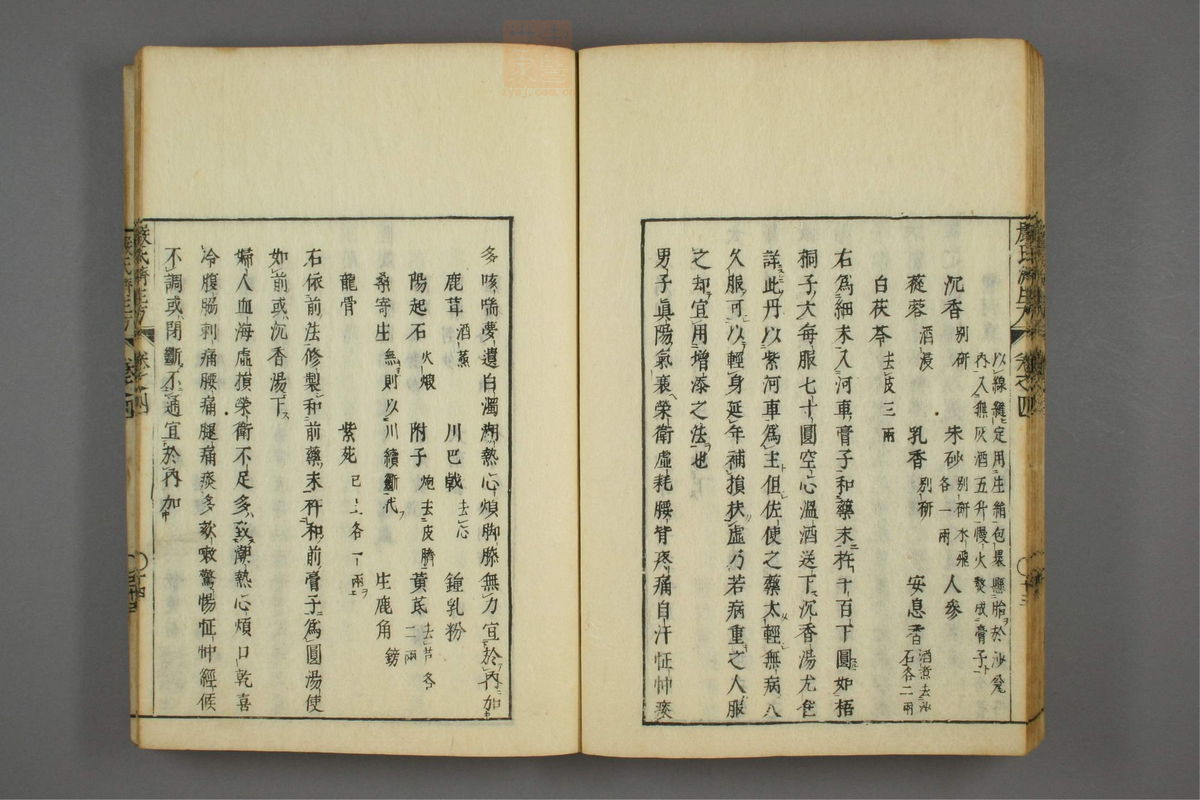 嚴氏濟生方 卷之四 十三
以線縫定用生絹包裹懸胎於沙瓮
內入無灰酒五升慢火熬成膏子
沉香別研 朱砂別研水飛各一兩 人參
蓯蓉酒浸 乳香別研 安息香酒煮去沙石各二兩
白茯苓去皮三兩
右爲細末入河車膏子和藥末杵千百下圓如梧
桐子大每服七十圓空心溫酒送下沉香湯尤佳
詳此丹以紫河車爲主但佐使之藥太輕無病人
久服可以輕身延年補損扶虛乃若病重之人服
之却宜用增添之法也
男子眞陽氣衰榮衛虛耗腰背疼痛自汗怔忡痰
多咳喘夢遺白濁潮熱心煩脚膝無力宜於內加
鹿茸酒蒸 川巴戟去心 鍾乳粉
陽起石火煅 附子炮去皮臍 黃芪去芦各二兩
桑寄生無則以川續斷代 生鹿角鎊
龍骨 紫苑已上各一兩
右依前法修製和前藥末杵和前膏子爲圓湯使
如前或沉香湯下
婦人血海虛損榮衛不足多致潮熱心煩口乾喜
冷腹脇刺痛腰痛腿痛痰多欬嗽驚惕怔忡經候
不調或閉斷不通宜於內加
嚴氏濟生方 卷之四 十四